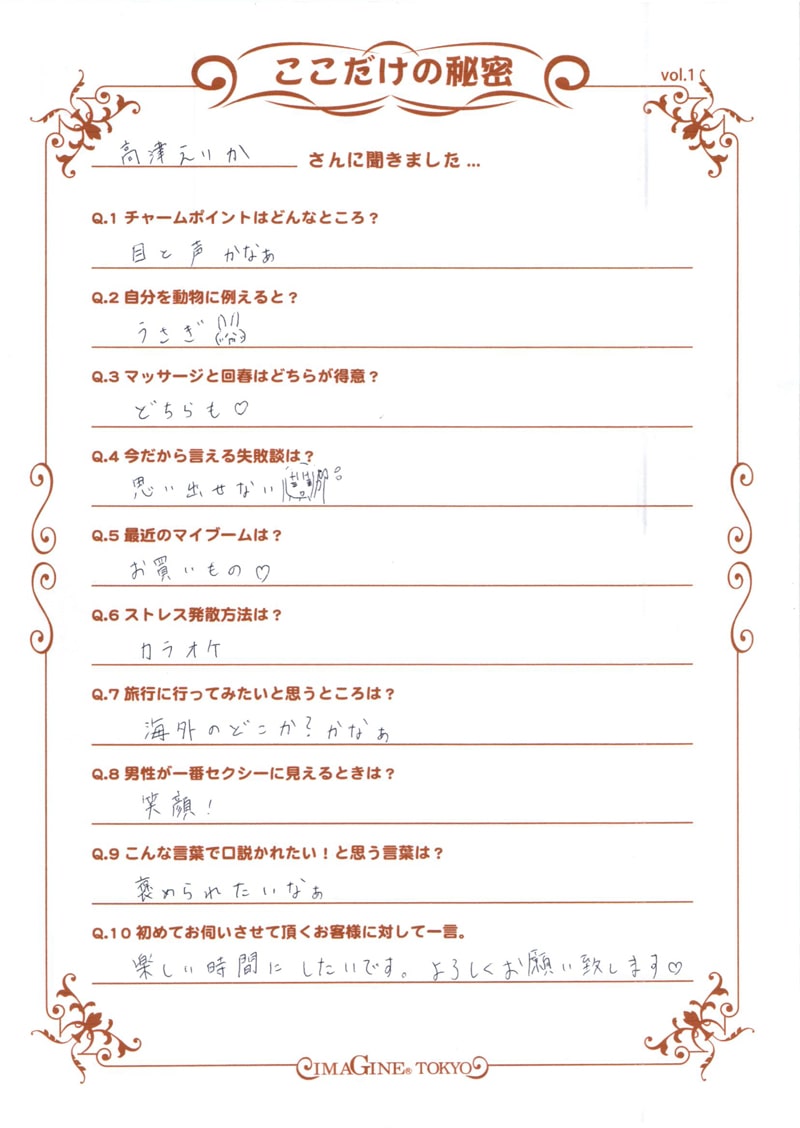 ここだけの秘密
vol.1
高津えりか さんに聞きました...
Q.1 チャームポイントはどんなところ？
目と声かなぁ
Q.2 自分を動物に例えると？
うさぎ
Q.3 マッサージと回春はどちらが得意？
どちらも♡
Q.4 今だから言える失敗談は？
思い出せない
Q.5 最近のマイブームは？
お買いもの♡
Q.6 ストレス発散方法は？
カラオケ
Q.7 旅行に行ってみたいと思うところは？
海外のどこか？かなぁ
Q.8 男性が一番セクシーに見えるときは？
笑顔！
Q.9 こんな言葉で口説かれたい！と思う言葉は？
褒められたいなぁ
Q.10 初めてお伺いさせて頂くお客様に対して一言。
楽しい時間にしたいです。よろしくお願い致します♡
IMAGINE® TOKYO